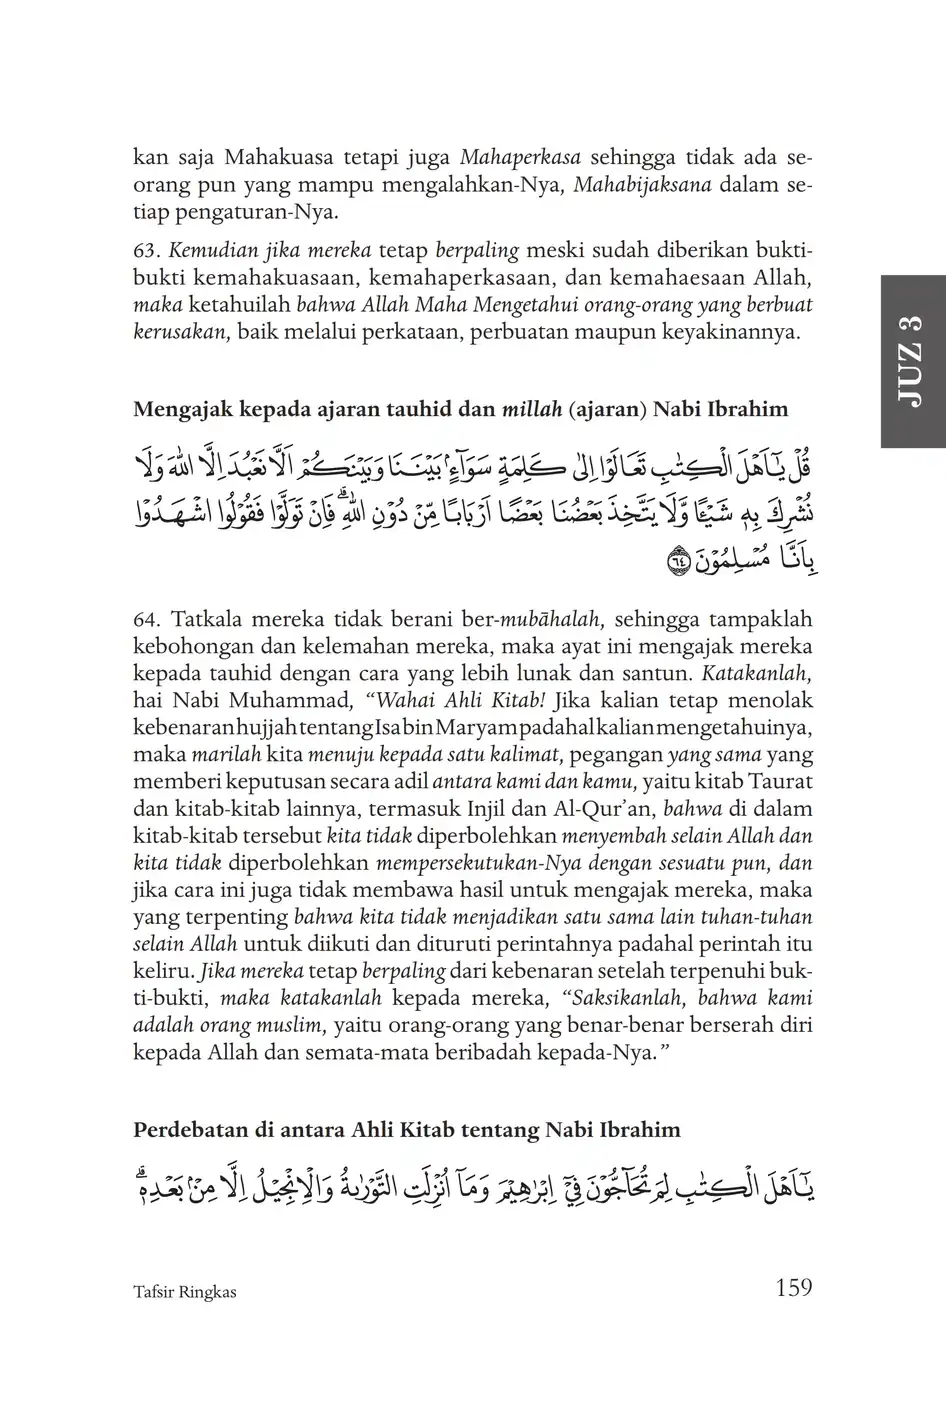 kan saja Mahakuasa tetapi juga Mahaperkasa sehingga tidak ada se-
orang pun yang mampu mengalahkan-Nya, Mahabijaksana dalam se-
tiap pengaturan-Nya.
63. Kemudian jika mereka tetap berpaling meski sudah diberikan bukti-
bukti kemahakuasaan, kemahaperkasaan, dan kemahaesaan Allah,
maka ketahuilah bahwa Allah Maha Mengetahui orang-orang yang berbuat
kerusakan, baik melalui perkataan, perbuatan maupun keyakinannya.
JUZ 3
Mengajak kepada ajaran tauhid dan millah (ajaran) Nabi Ibrahim
قُلْ يٰٓاَهْلَ الْكِتٰبِ تَعَالَوْا اِلٰى كَلِمَةٍ سَوَاۤءٍۢ بَيْنَنَا وَبَيْنَكُمْ اَلَّا نَعْبُدَ اِلَّا اللّٰهَ وَلَا
نُشْرِكَ بِهٖ شَيْـًٔا وَّلَا يَتَّخِذَ بَعْضُنَا بَعْضًا اَرْبَابًا مِّنْ دُوْنِ اللّٰهِ ۗ فَاِنْ تَوَلَّوْا فَقُوْلُوا اشْهَدُوْا
بِاَنَّا مُسْلِمُوْنَ ٦٤
64. Tatkala mereka tidak berani ber-mubāhalah, sehingga tampaklah
kebohongan dan kelemahan mereka, maka ayat ini mengajak mereka
kepada tauhid dengan cara yang lebih lunak dan santun. Katakanlah,
hai Nabi Muhammad, “Wahai Ahli Kitab! Jika kalian tetap menolak
kebenaran hujjah tentang Isa bin Maryam padahal kalian mengetahuinya,
maka marilah kita menuju kepada satu kalimat, pegangan yang sama yang
memberi keputusan secara adil antara kami dan kamu, yaitu kitab Taurat
dan kitab-kitab lainnya, termasuk Injil dan Al-Qur’an, bahwa di dalam
kitab-kitab tersebut kita tidak diperbolehkan menyembah selain Allah dan
kita tidak diperbolehkan mempersekutukan-Nya dengan sesuatu pun, dan
jika cara ini juga tidak membawa hasil untuk mengajak mereka, maka
yang terpenting bahwa kita tidak menjadikan satu sama lain tuhan-tuhan
selain Allah untuk diikuti dan dituruti perintahnya padahal perintah itu
keliru. Jika mereka tetap berpaling dari kebenaran setelah terpenuhi buk-
ti-bukti, maka katakanlah kepada mereka, “Saksikanlah, bahwa kami
adalah orang muslim, yaitu orang-orang yang benar-benar berserah diri
kepada Allah dan semata-mata beribadah kepada-Nya.”
Perdebatan di antara Ahli Kitab tentang Nabi Ibrahim
يٰٓاَهْلَ الْكِتٰبِ لِمَ تُحَاۤجُّوْنَ فِيْٓ اِبْرٰهِيْمَ وَمَآ اُنْزِلَتِ التَّوْرٰىةُ وَالْاِنْجِيْلُ اِلَّا مِنْۢ بَعْدِهٖۗ
Tafsir Ringkas
159